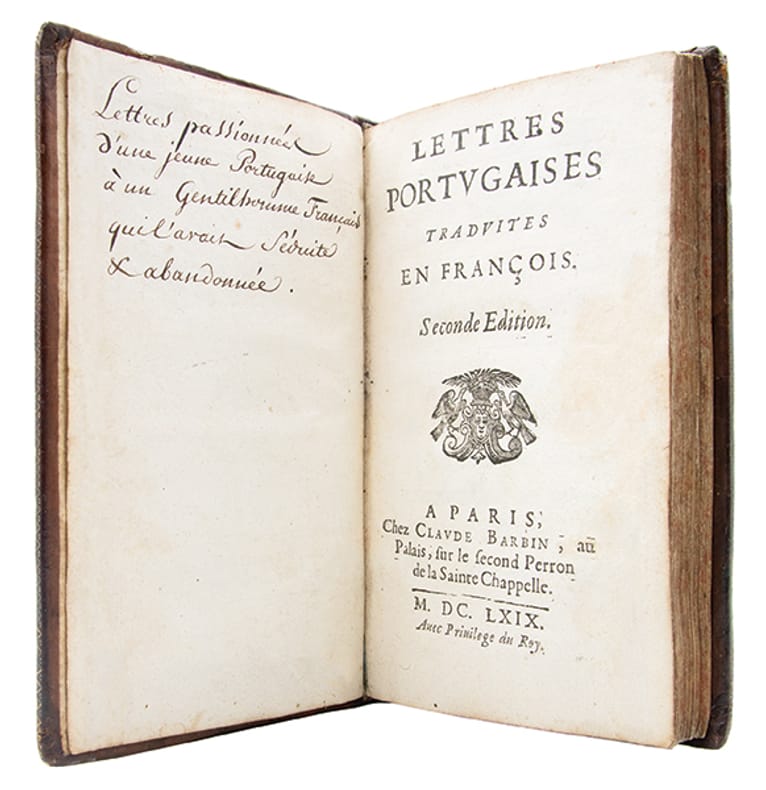 Lettres passionnées
d'une jeune Portugaise
à un Gentilhomme Français
qui l'avait Séduite
& abandonnée.
LETTRES
PORTVGAISES
TRADVITES
EN FRANÇOIS.
Seconde Edition.
A PARIS,
Chez CLAVDE BARBIN, au
Palais, sur le second Perron
de la Sainte Chappelle.
M. DC. LXIX.
Auec Priuilege du Roy.